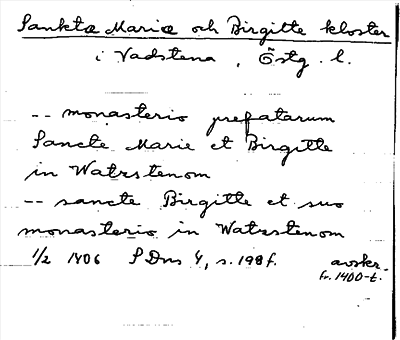 Sanktæ Mariæ och Birgitte kloster
i Vadstena, Östg. l.
-- monasterio prefatarum
Sancte Marie et Birgitte
in Watzstenom
-- sancte Birgitte et suo
monasterio in Watzstenom
1/2 1406 SDns 4, s. 198f. avskr.
fr. 1400-t.